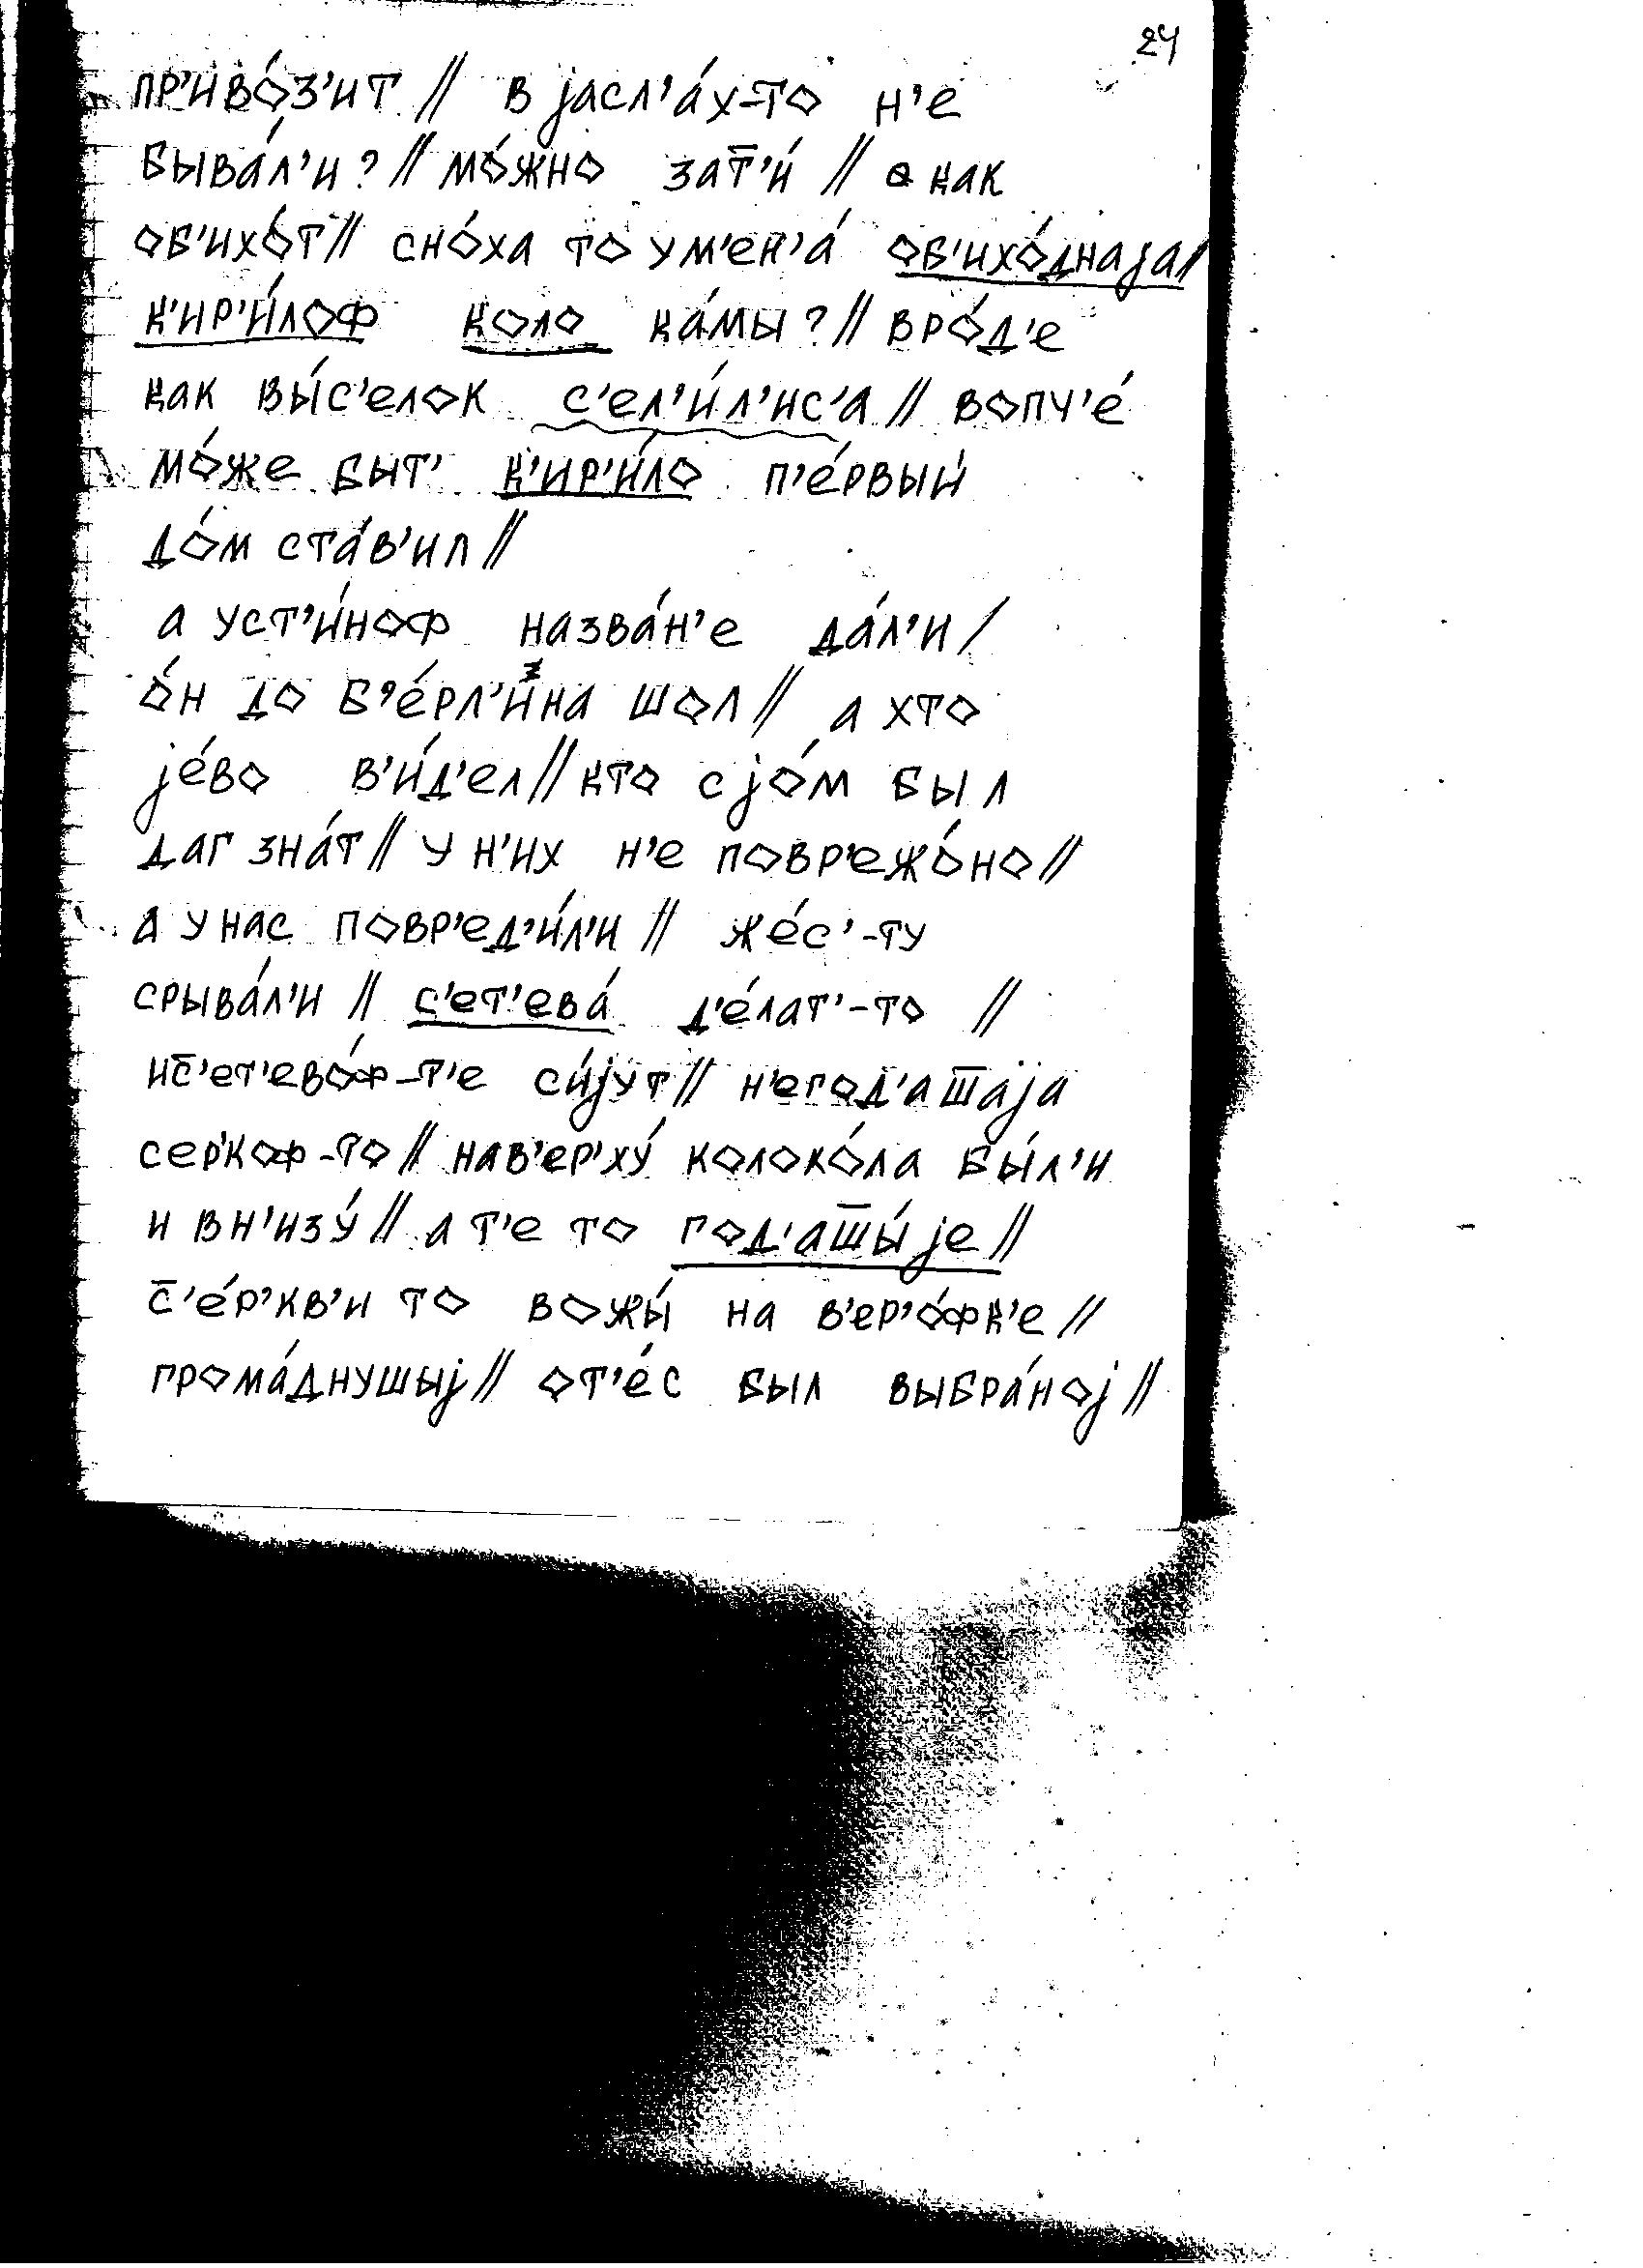 24
пр'иво́з'ит // в jасл'а́х-то н'е
быва́л'и? // мо́жно зат̅'и́ // а как
об'ихо́т // сно́ха то ум'ен'а́ об'ихо́днаjа//
к'ир'и́лоф коло ка́мы? // вро́д'е
как вы́с'елок с'ел'и́л'ис'а // вопч'е́
мо́же быт' к'ир'и́ло п'е́рвый
до́м ста́в'ил //
а уст'и́ноф назва́н'е да́л'и /
о́н до б'е́рл'и́на шол // а хто
jе́во в'и́д'ел // кто сjо́м был
даг зна́т // у н'их н'е повр'ежо́но //
а у нас повр'ед'и́л'и // же́с'-ту
срыва́л'и // с'ет'ева́ д'е́лат'-то //
ис̅'ет'ево́ф-т'е си́jут // н'егод'аш̅аjа
серкоф-то // нав'ер'ху́ колоко́ла бы́л'и
и вн'изу́ // а т'е то год'аш̅ы́jе //
с̅'е́р'кв'и то вожы́ на в'ер'о́фк'е //
грома́днушыj // от'е́с был выбра́ноj //